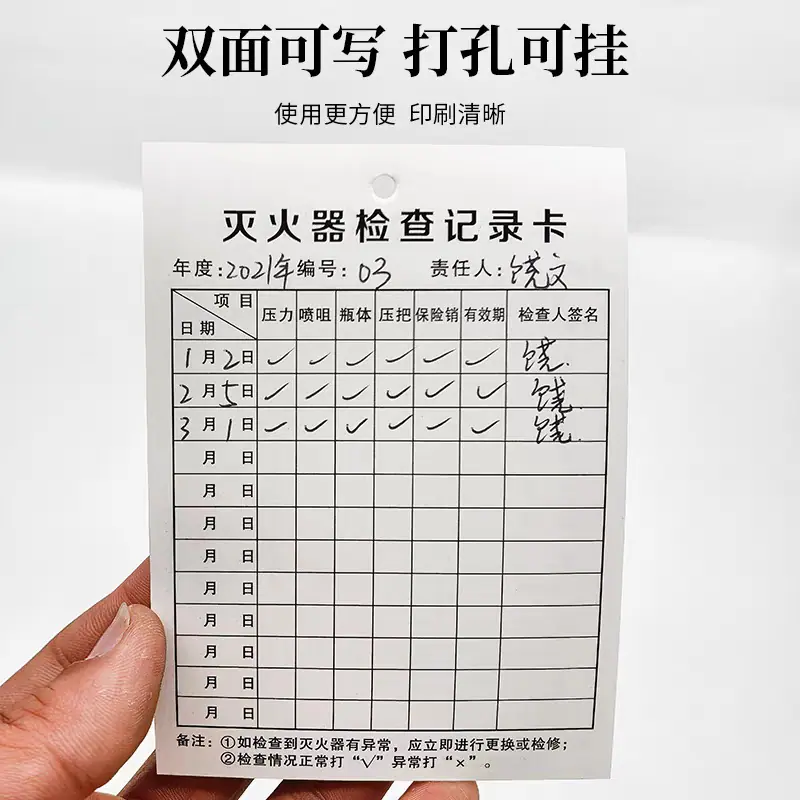 双面可写 打孔可挂
使用更方便 印刷清晰
灭火器检查记录卡
年度:2021年 编号:03 责任人:饶文
项目 压力 喷咀 瓶体 压把 保险销 有效期 检查人签名
日期
1月2日 ✓ ✓ ✓ ✓ ✓ ✓ 饶.
2月5日 ✓ ✓ ✓ ✓ ✓ ✓ 饶.
3月1日 ✓ ✓ ✓ ✓ ✓ ✓ 饶.
月 日
月 日
月 日
月 日
月 日
月 日
月 日
月 日
月 日
备注:①如检查到灭火器有异常,应立即进行更换或检修;
②检查情况正常打“√”异常打“×”。